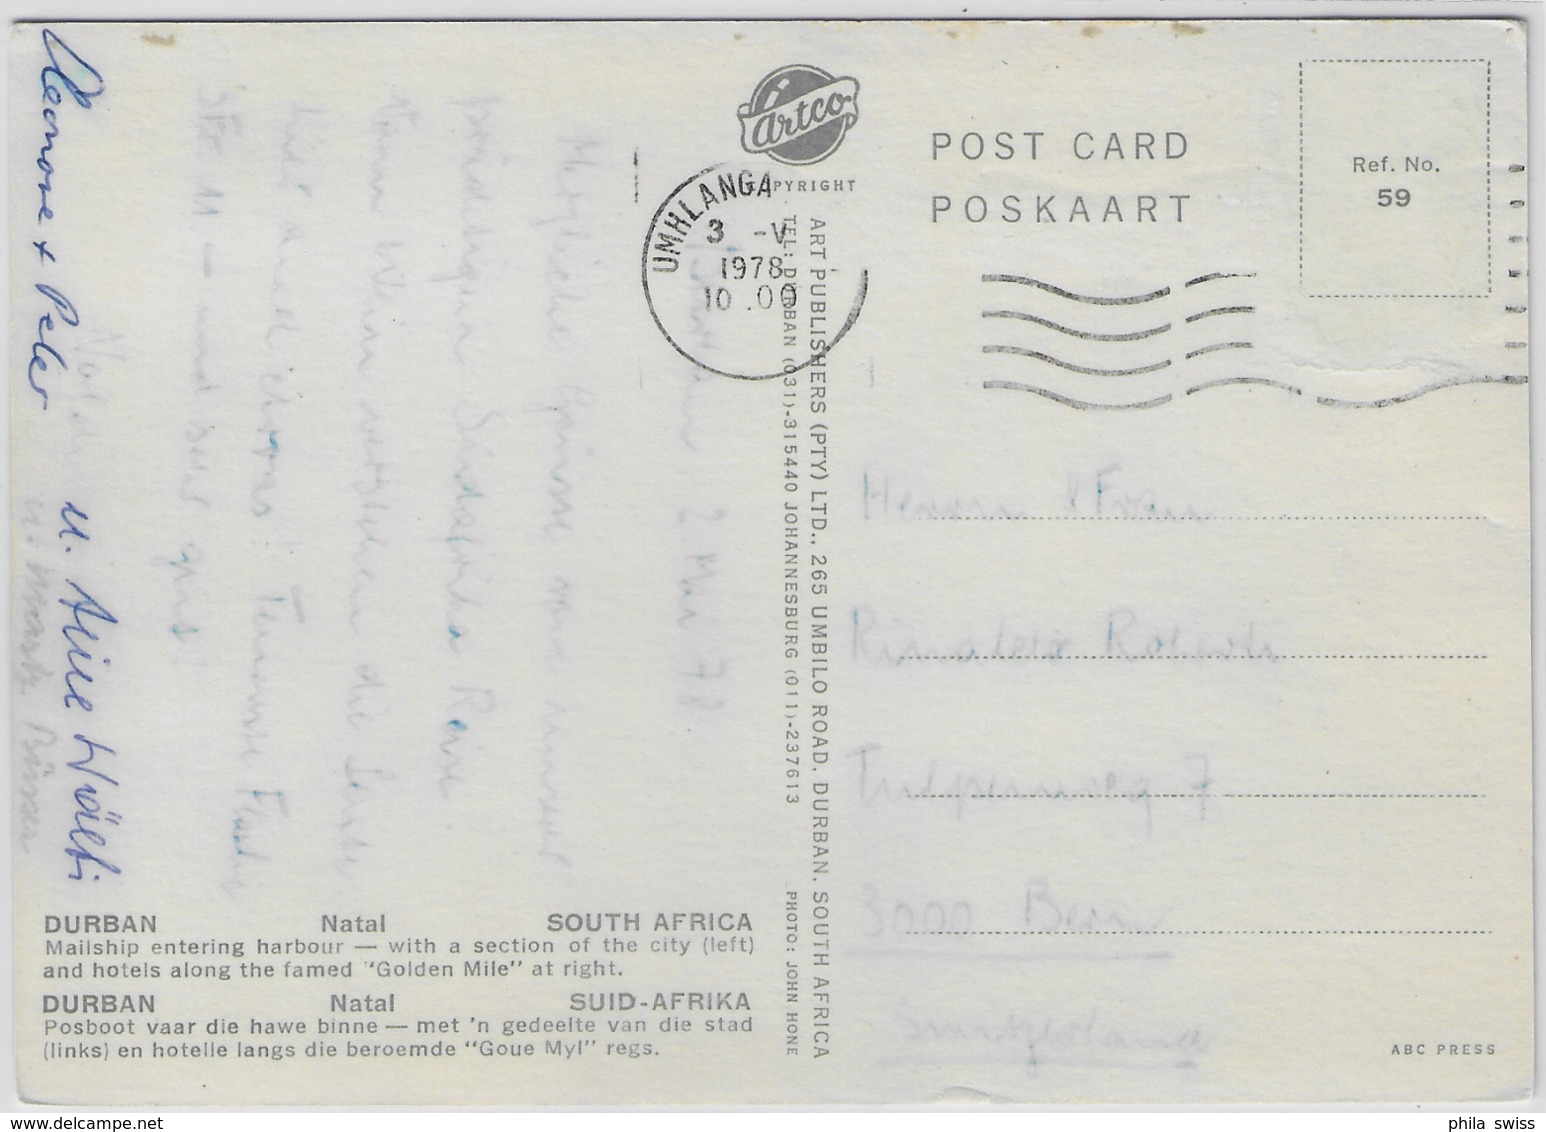 artco
COPYRIGHT
POST CARD
POSKAART
Ref. No.
59
UMHLANGA
3 -V
1978
10.00
ART PUBLISHERS (PTY) LTD., 265 UMBILO ROAD, DURBAN. SOUTH AFRICA
TEL: DURBAN (031)-315440 JOHANNESBURG (011)-237613 PHOTO: JOHN HONE
2. Mai 78
Herzliche Grüsse von unserer
Südafrika Reise.
die Leute
hier und etwas! Flasche
SFr. 11 — und sehr gut!
Leonore + Peter
u. Wälti
Herrn + Frau
Rinaldo Roberti
Tulpenweg 7
3000 Bern
Switzerland
DURBAN Natal SOUTH AFRICA
Mailship entering harbour — with a section of the city (left)
and hotels along the famed "Golden Mile" at right.
DURBAN Natal SUID-AFRIKA
Posboot vaar die hawe binne — met 'n gedeelte van die stad
(links) en hotelle langs die beroemde "Goue Myl" regs.
ABC PRESS
phila swiss